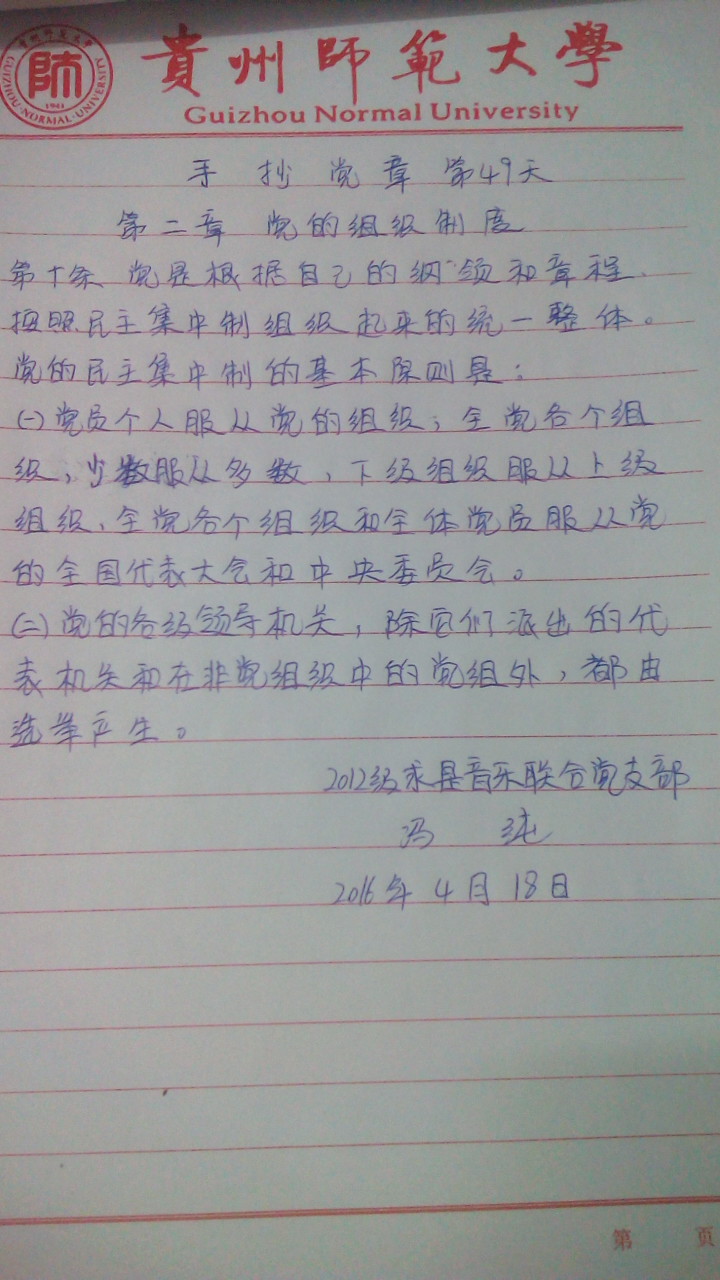 貴州師範大學
Guizhou Normal University
貴州師範大學
師
1941
GUIZHOU·NORMAL·UNIVERSITY
手抄党章第49天
第二章 党的组织制度
第十条 党是根据自己的纲领和章程、
按照民主集中制组织起来的统一整体。
党的民主集中制的基本原则是:
(一)党员个人服从党的组织,全党各个组
织,少数服从多数,下级组织服从上级
组织,全党各个组织和全体党员服从党
的全国代表大会和中央委员会。
(二)党的各级领导机关,除它们派出的代
表机关和在非党组织中的党组外,都由
选举产生。
2012级求是音乐联合党支部
冯 纯
2016年4月18日
第 页